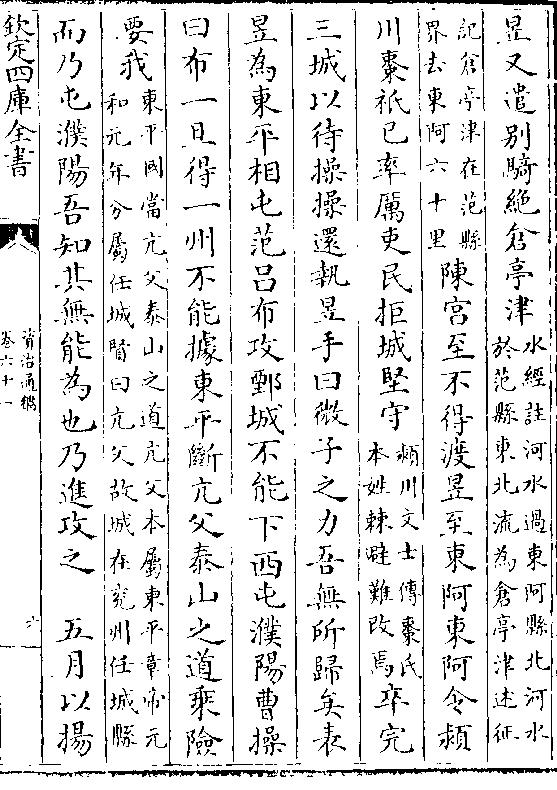 昱又遣别騎絶倉亭津水經註河水過東阿縣北河水於范縣東北流為倉亭津述征
記倉亭津在范縣界去東阿六十里陳宮至不得渡昱至東阿東阿令潁
川棗祗已率厲吏民拒城堅守潁川文士傳棗氏本姓棘避難改焉卒完
三城以待操操還執昱手曰微子之力吾無所歸矣表
昱為東平相屯范吕布攻鄄城不能下西屯濮陽曹操
曰布一旦得一州不能據東平斷亢父泰山之道乘險
要我東平國當亢父泰山之道亢父本屬東平章帝元和元年分屬任城賢曰亢父故城在兖州任城縣
而乃屯濮陽吾知其無能為也乃進攻之　五月以揚
欽定四庫全書
資治通鑑
卷六十一
六